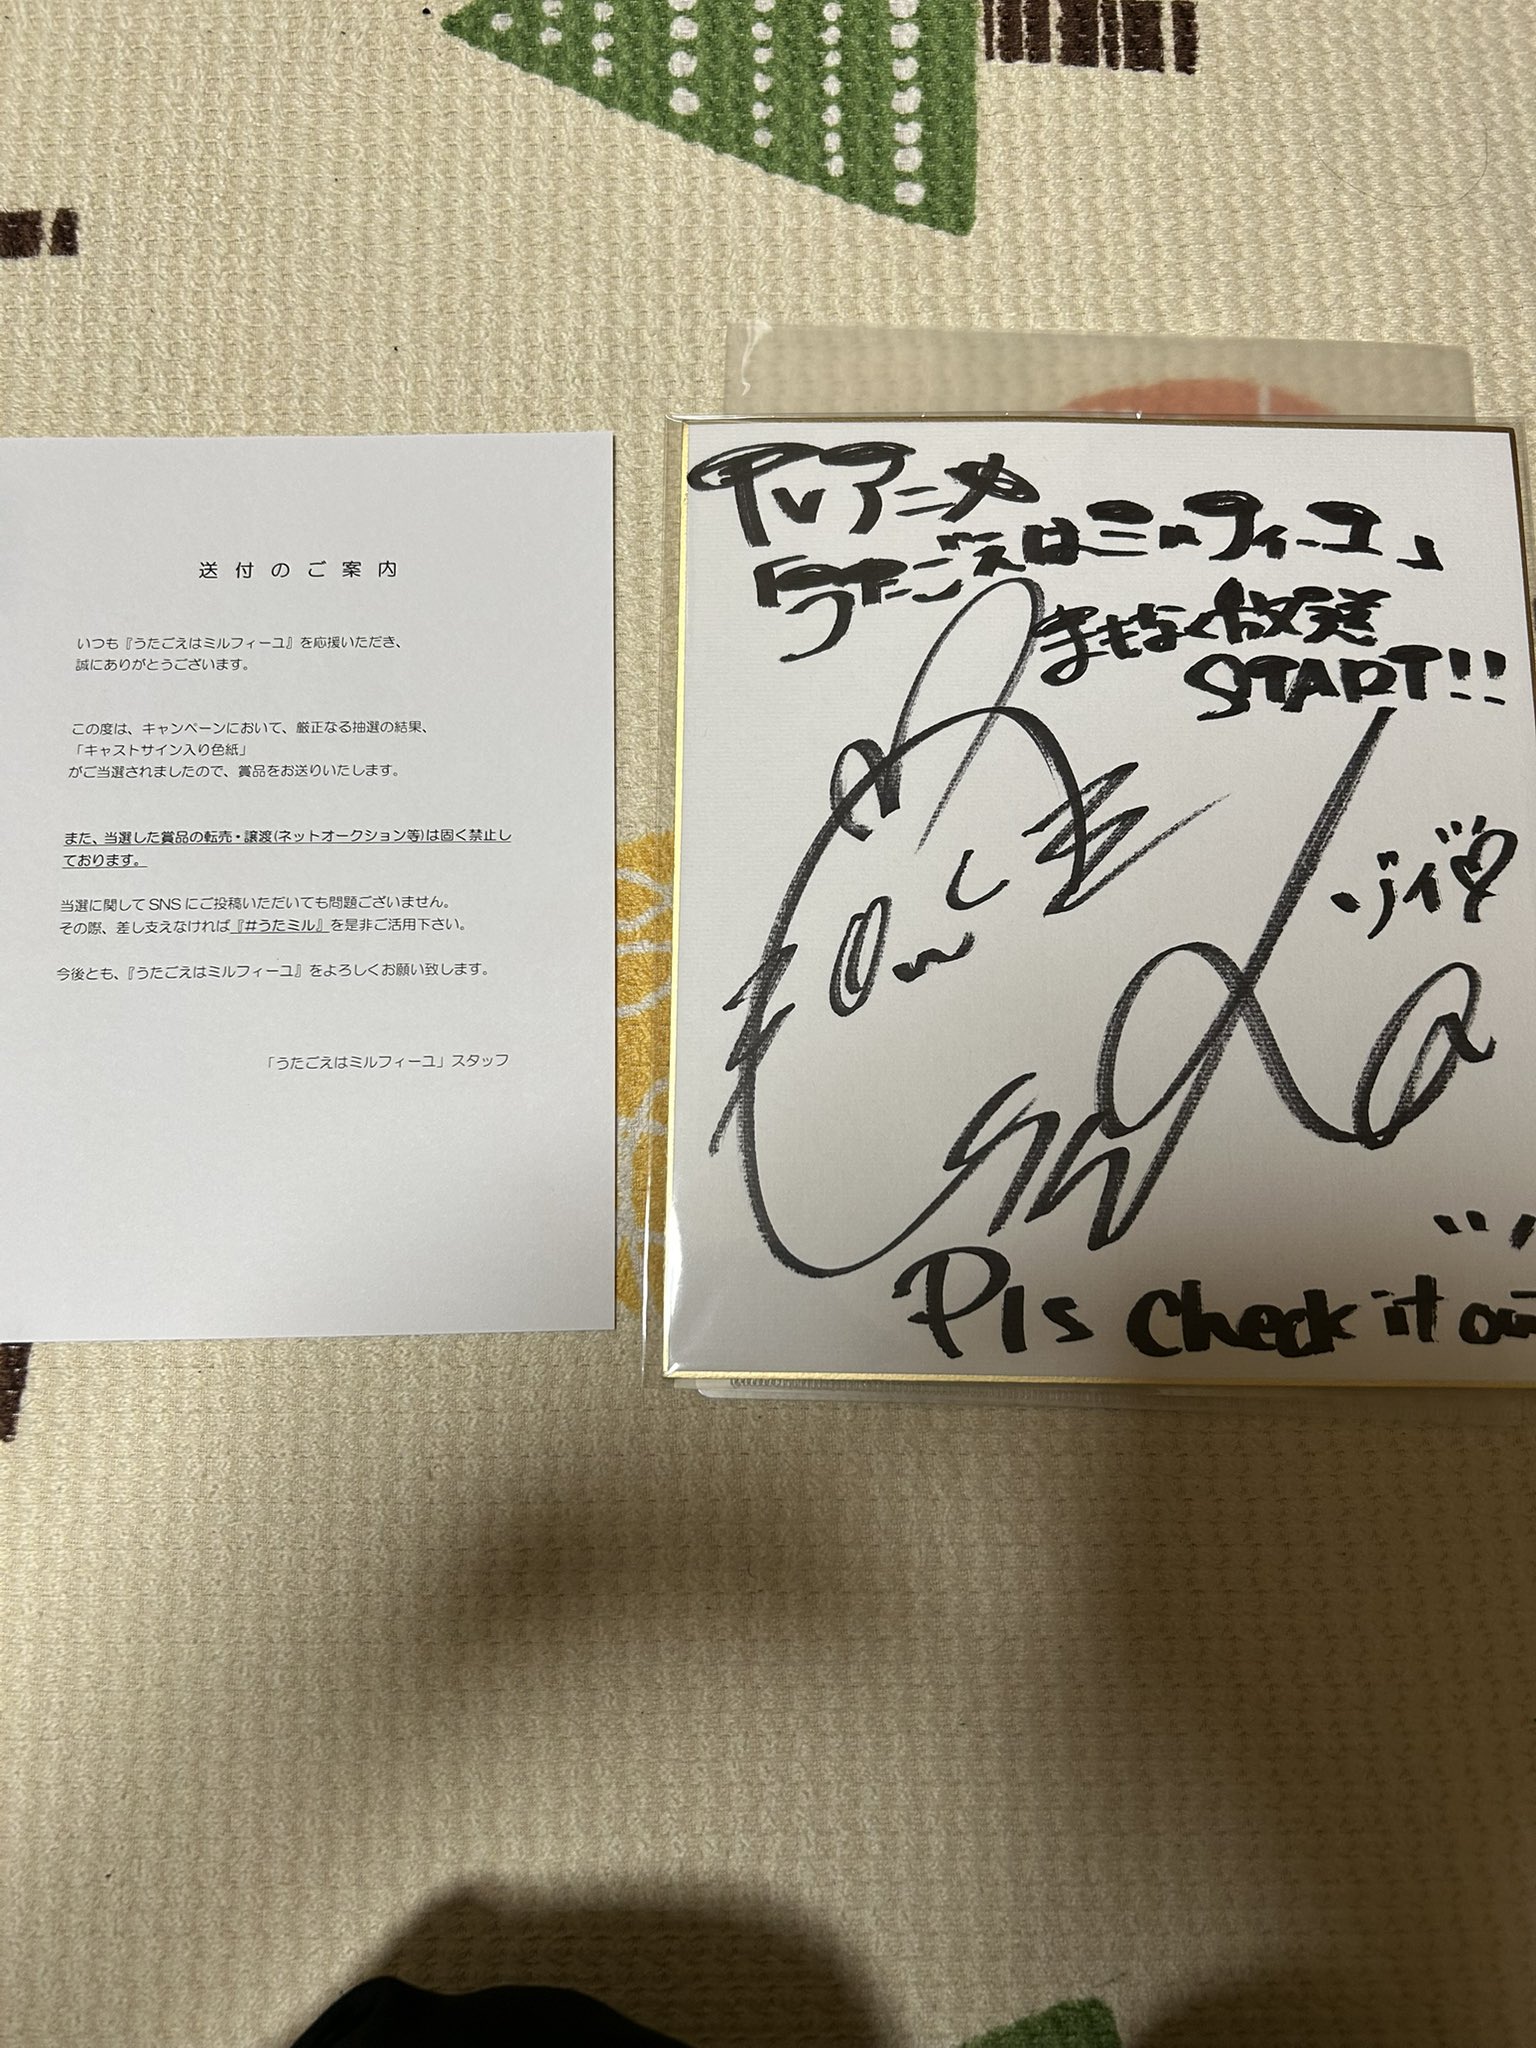 送付のご案内
いつも『うたごえはミルフィーユ』を応援いただき、
誠にありがとうございます。
この度は、キャンペーンにおいて、厳正なる抽選の結果、
「キャストサイン入り色紙」
がご当選されましたので、賞品をお送りいたします。
また、当選した賞品の転売・譲渡(ネットオークション等)は固く禁止し
ております。
当選に関して SNS にご投稿いただいても問題ございません。
その際、差し支えなければ『#うたミル』を是非ご活用下さい。
今後とも、『うたごえはミルフィーユ』をよろしくお願い致します。
「うたごえはミルフィーユ」スタッフ
TVアニメ
「うたごえはミルフィーユ」
まもなく放送
START!!
Pls check it out